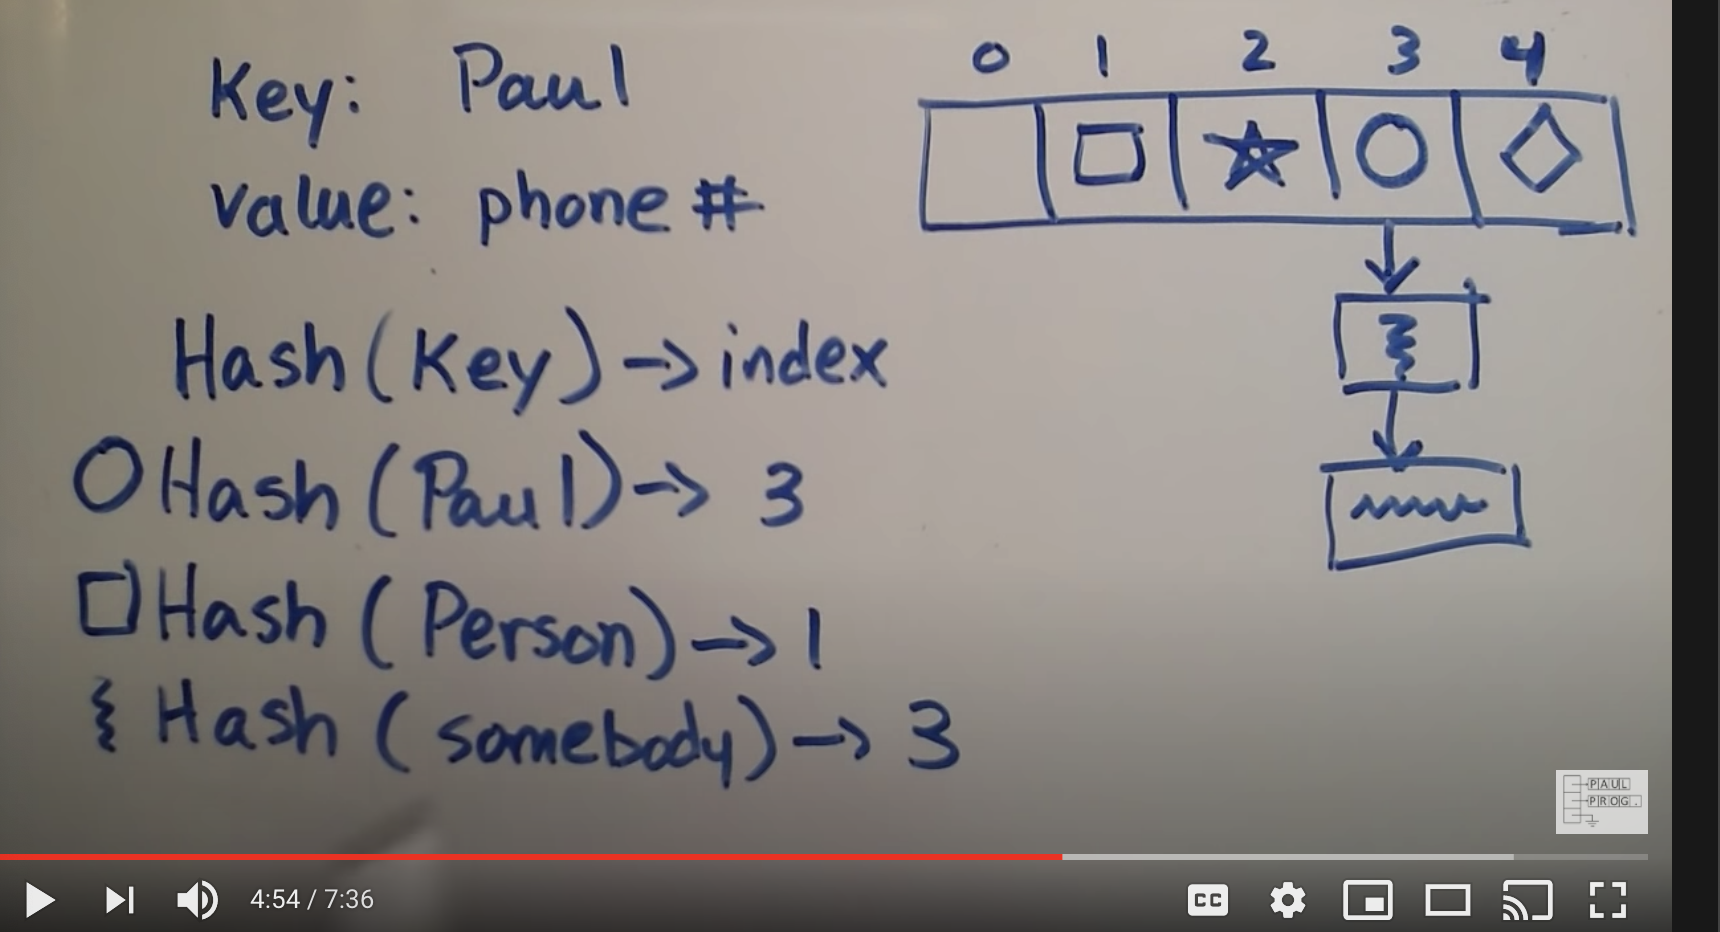 Key: Paul
value: phone #
Hash(Key) -> index
Hash(Paul) -> 3
Hash(Person) -> 1
Hash(somebody) -> 3
0 1 2 3 4
PAUL
PROG.
4:54 / 7:36
CC